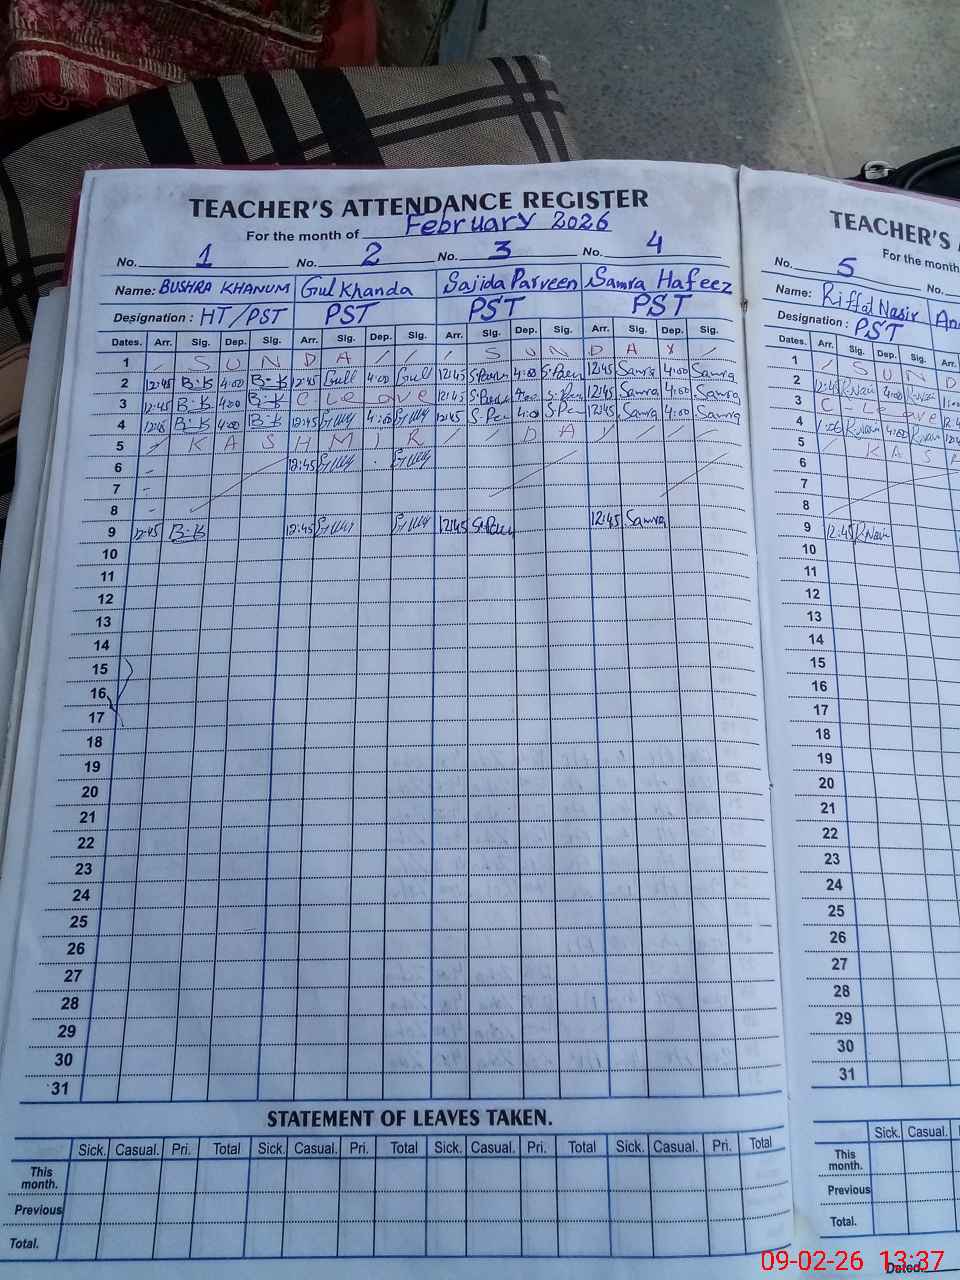 TEACHER'S ATTENDANCE REGISTER
For the month of February 2026
No. 1 No. 2 No. 3 No. 4
Name: BUSHRA KHANUM Gul Khanda Sajida Parveen Samra Hafeez
Designation : HT/PST PST PST PST
Dates. Arr. Sig. Dep. Sig. Arr. Sig. Dep. Sig. Arr. Sig. Dep. Sig. Arr. Sig. Dep. Sig.
1 S U N D A / / / S U N D A Y /
2 12:45 B.K 4:00 B.K 12:45 Gull 4:00 Gull 12:45 4:00 12:45 Samra 4:00 Samra
3 12:45 B.K 4:00 B.K C Le ave 12:45 12:45 Samra 4:00 Samra
4 12:45 B.K 4:00 B.K 12:45 4:00 12:45 4:00 12:45 Samra 4:00 Samra
5 / K A S H M I R / / D A Y / /
6 - 12:45
7 -
8 -
9 12:45 B.K 12:45 12:45 12:45 Samra
10
11
12
13
14
15
16
17
18
19
20
21
22
23
24
25
26
27
28
29
30
31
STATEMENT OF LEAVES TAKEN.
Sick. Casual. Pri. Total Sick. Casual. Pri. Total Sick. Casual. Pri. Total Sick. Casual. Pri. Total
This month.
Previous
Total.
TEACHER'S
For the month
No. 5 No.
Name: Riffat Nasir
Designation : PST
Dates. Arr. Sig. Dep. Sig. Arr.
1 / S U N D
2 12:45 4:00
3 C - Le ave
4 4:00
5 / K A S
6
7
8
9 12:45
10
11
12
13
14
15
16
17
18
19
20
21
22
23
24
25
26
27
28
29
30
31
Sick. Casual.
This month.
Previous
Total.
Dated.
09-02-26 13:37